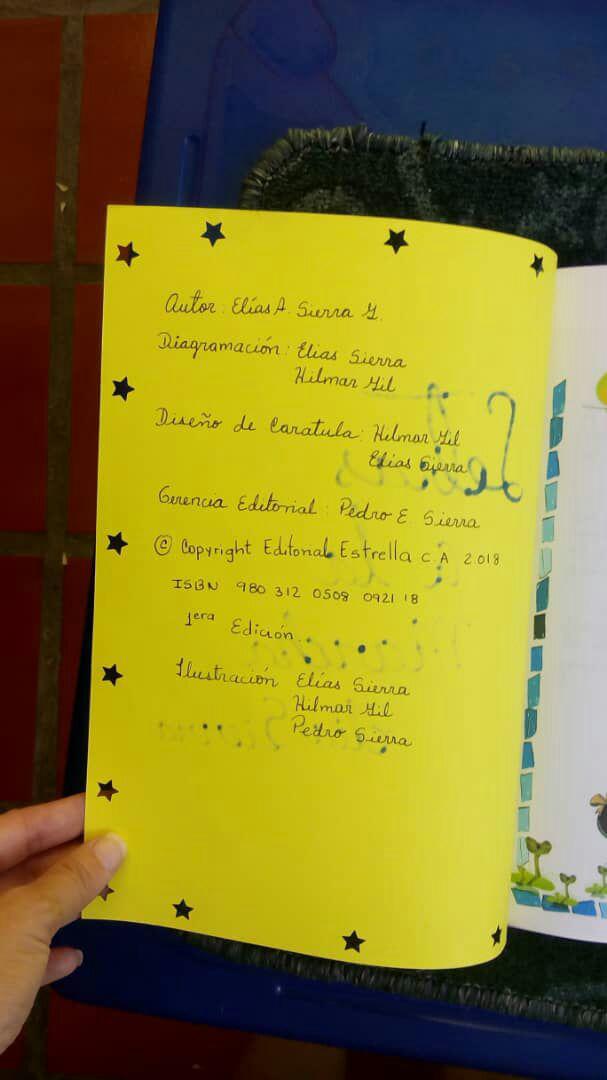 Autor: Elías A. Sierra G.
Diagramación: Elias Sierra
Hilmar Gil
Diseño de Caratula: Hilmar Gil
Elias Sierra
Gerencia Editorial: Pedro E. Sierra
© Copyright Editorial Estrella C.A 2.018
ISBN 980 312 0508 0921 18
1era Edición
Ilustración Elías Sierra
Hilmar Gil
Pedro Sierra